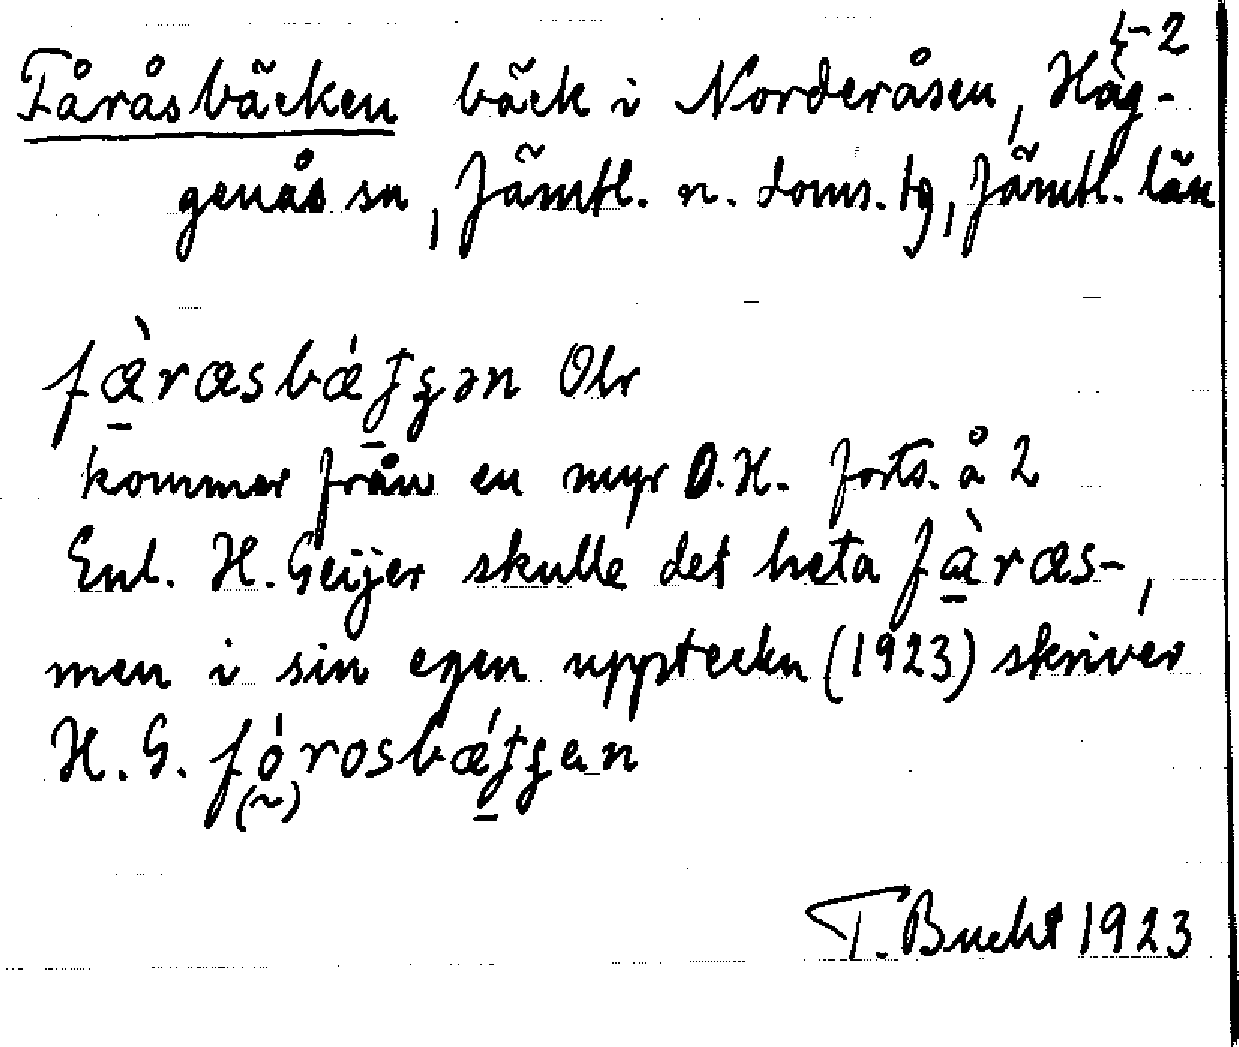 5-2
Fåråsbäcken bäck i Norderåsen, Häg-
genås sn, Jämtl. n. doms. tg, Jämtl. län
fæ̀ræsbǽʈʂən Obr
kommer från en myr O.H. forts. å 2
Enl. H. Geijer skulle det heta fæ̀ræs-,
men i sin egen uppteckn (1923) skriver
H. G. fórosbǽʈʂen
(~)
T. Bucht 1923